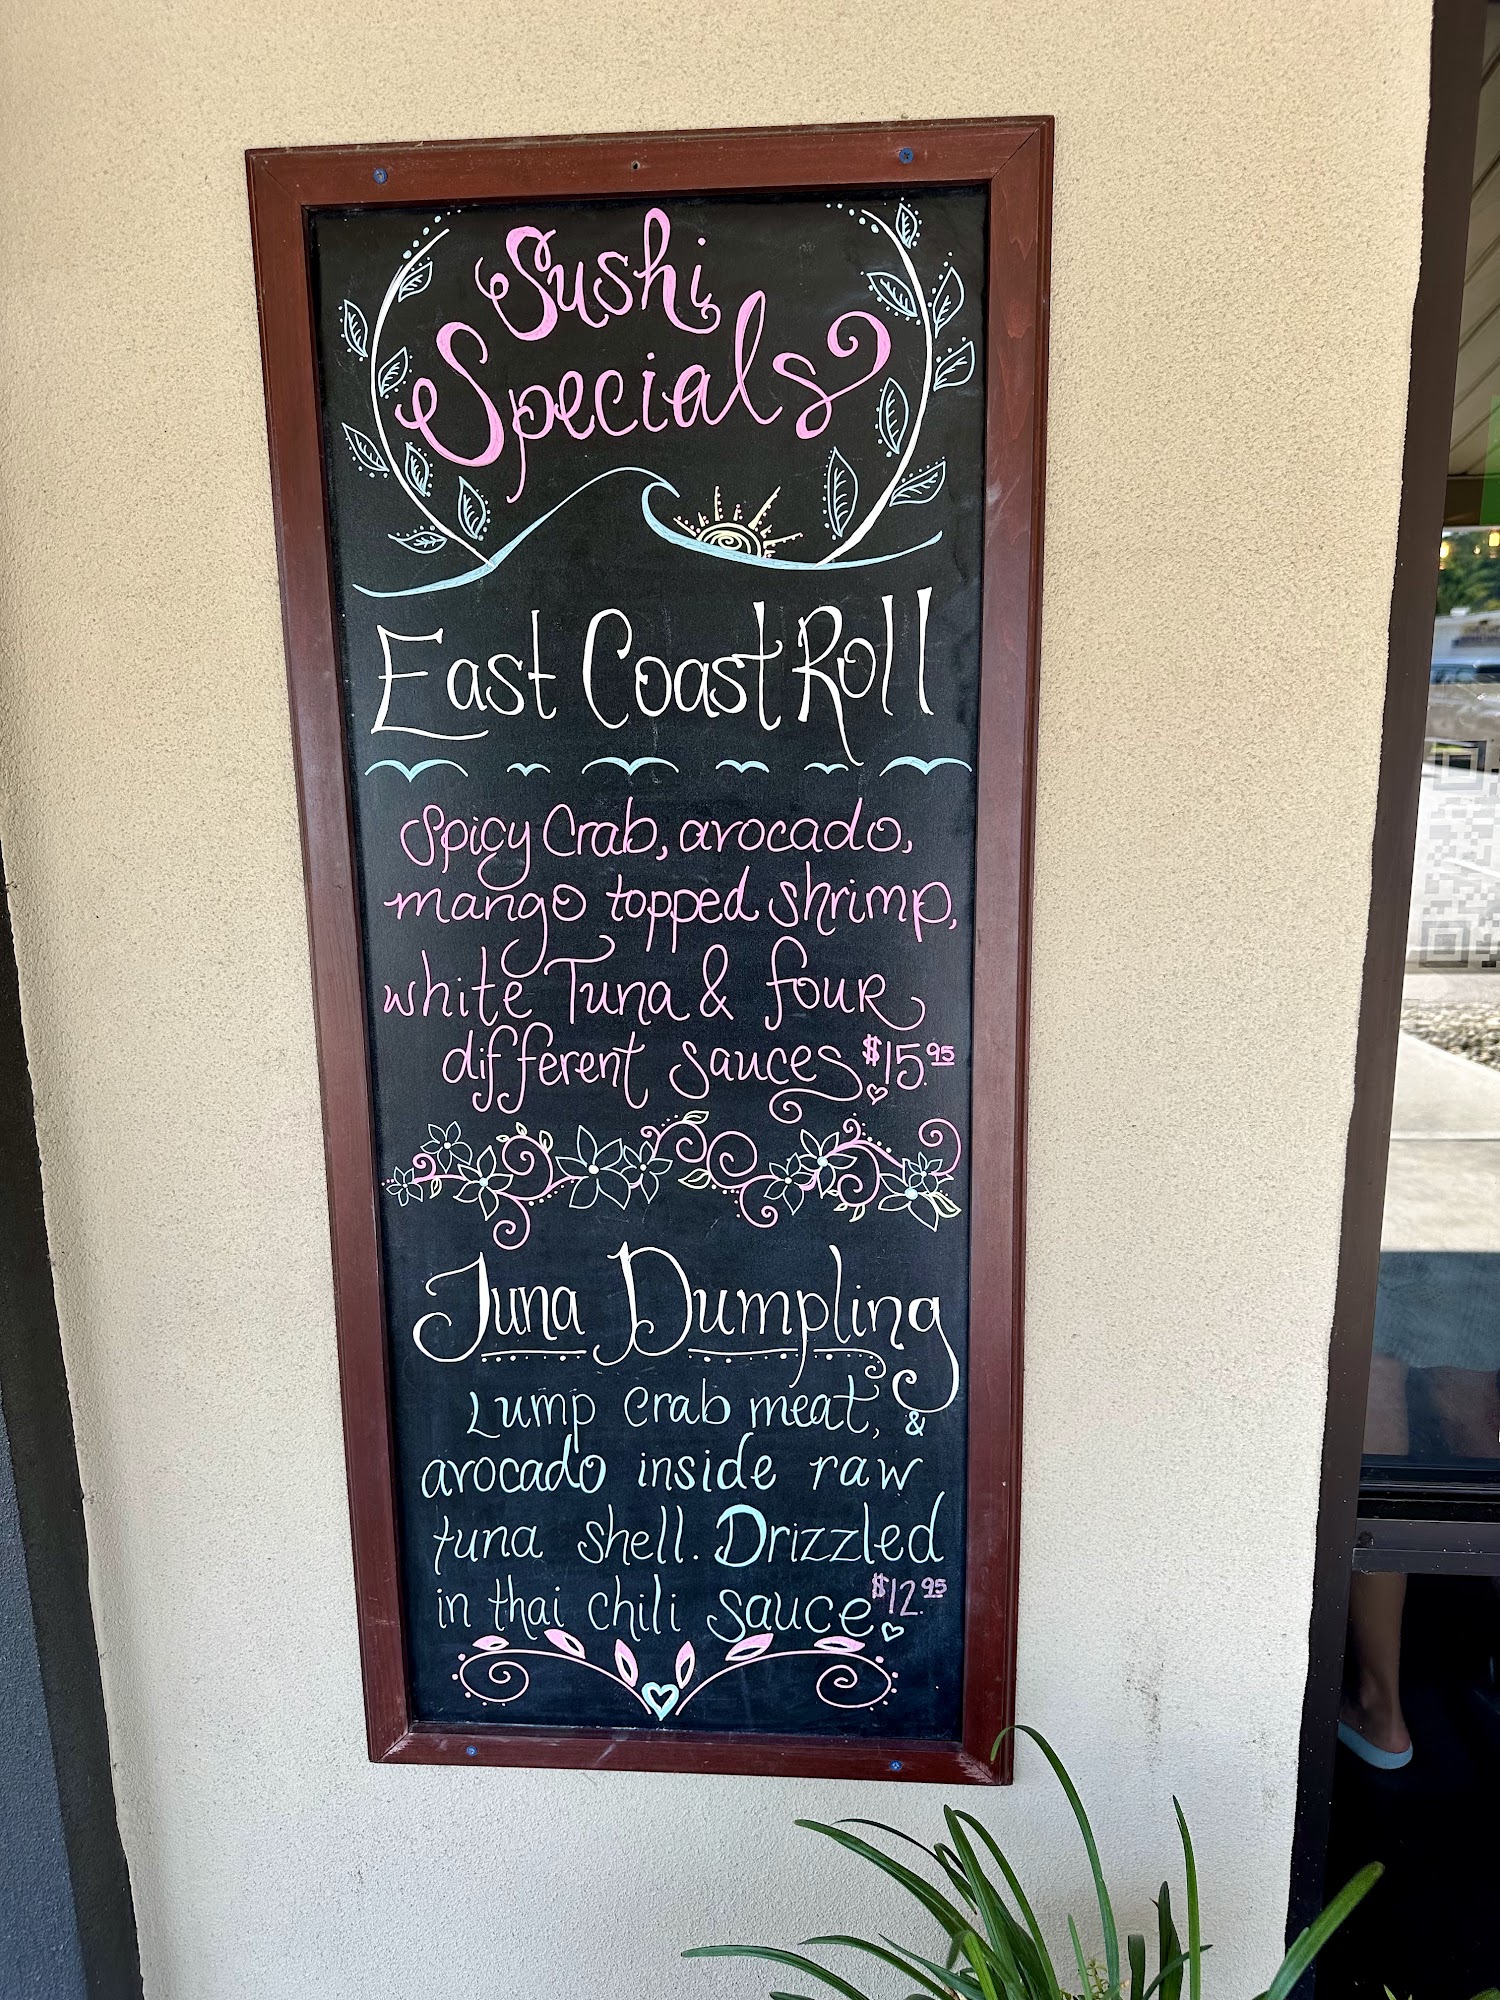 Sushi
Specials
East Coast Roll
Spicy Crab, avocado,
mango topped shrimp,
white Tuna & four
different sauces $15.95
Tuna Dumpling
Lump crab meat, &
avocado inside raw
tuna shell. Drizzled
in thai chili sauce $12.95